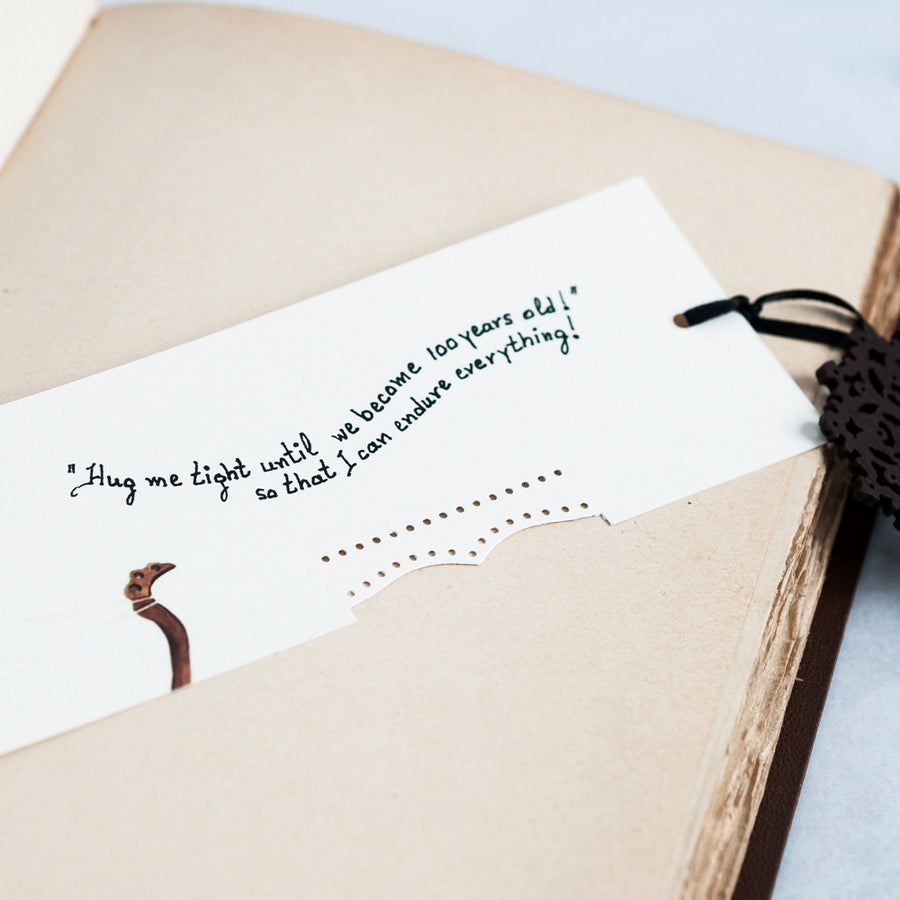 "Hug me tight until we become 100 years old!"
so that I can endure everything!